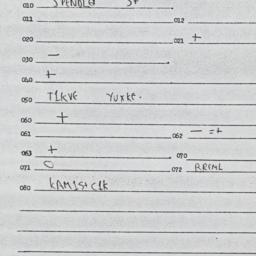 010 SPENDLER St
011 012
020 021 +
030 —
040 +
050 T1KVE YUXKE.
060 +
061 062 — =+
063 + 070
071 O 072 RRIML
080 KAM1St C1K